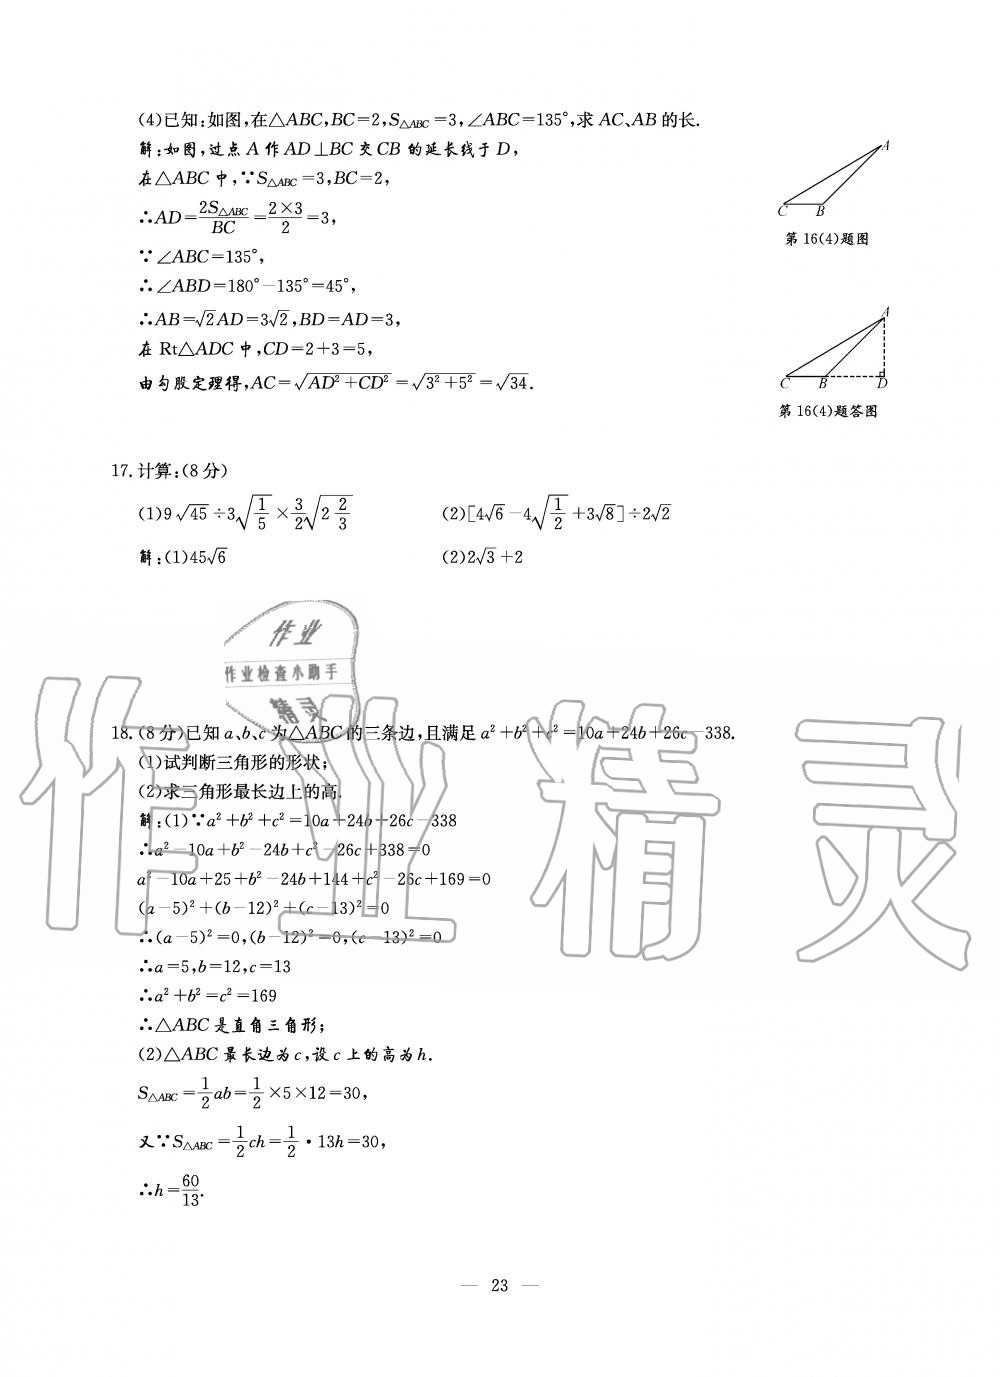 (4)已知:如图,在△ABC,BC=2,S△ABC=3,∠ABC=135°,求 AC、AB 的长.
解:如图,过点 A 作 AD⊥BC 交 CB 的延长线于 D,
在△ABC 中,∵S△ABC=3,BC=2,
∴AD=2S△ABC/BC=2×3/2=3,
∵∠ABC=135°,
∴∠ABD=180°-135°=45°,
∴AB=√2AD=3√2,BD=AD=3,
在 Rt△ADC 中,CD=2+3=5,
由勾股定理得,AC=√(AD²+CD²)=√(3²+5²)=√34.
A
C B
第 16(4)题图
A
C B D
第 16(4)题答图
17.计算:(8 分)
(1)9√45÷3√(1/5)×3/2√(2 2/3) (2)[4√6-4√(1/2)+3√8]÷2√2
解:(1)45√6 (2)2√3+2
作业
作业检查小助手
精灵
18.(8 分)已知 a、b、c 为△ABC 的三条边,且满足 a²+b²+c²=10a+24b+26c-338.
(1)试判断三角形的形状;
(2)求三角形最长边上的高.
解:(1)∵a²+b²+c²=10a+24b+26c-338
∴a²-10a+b²-24b+c²-26c+338=0
a²-10a+25+b²-24b+144+c²-26c+169=0
(a-5)²+(b-12)²+(c-13)²=0
∴(a-5)²=0,(b-12)²=0,(c-13)²=0
∴a=5,b=12,c=13
∴a²+b²=c²=169
∴△ABC 是直角三角形;
(2)△ABC 最长边为 c,设 c 上的高为 h.
S△ABC=1/2ab=1/2×5×12=30,
又∵S△ABC=1/2ch=1/2·13h=30,
∴h=60/13.
作业精灵
— 23 —